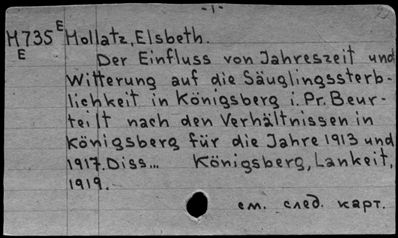 -1-
M735 E Mollatz, Elsbeth.
E
Der Einfluss von Jahreszeit und
Witterung auf die Säuglingssterb-
lichkeit in Königsberg i. Pr. Beur-
teilt nach den Verhältnissen in
Königsberg für die Jahre 1913 und
1917. Diss... Königsberg, Lankeit,
1919.
см. след. карт.